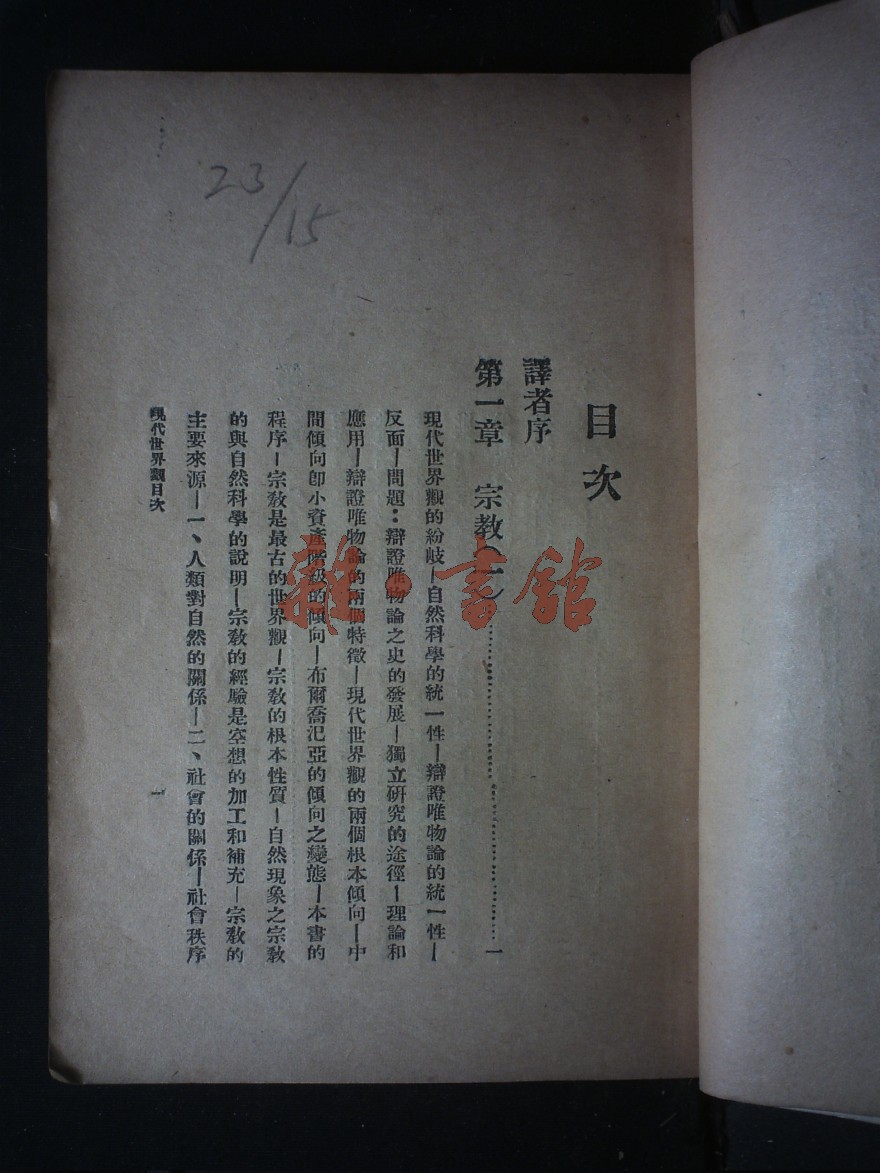 目次
譯者序
第一章 宗教(一)……一
現代世界觀的紛岐—自然科學的統一性—辯證唯物論的統一性—
反面—問題：辯證唯物論之史的發展—獨立研究的途徑—理論和
應用—辯證唯物論的兩個特徵—現代世界觀的兩個根本傾向—中
間傾向卽小資產階級的傾向—布爾喬汜亞的傾向之變態—本書的
程序—宗教是最古的世界觀—宗教的根本性質—自然現象之宗教
的與自然科學的說明—宗教的經驗是空想的加工和補充—宗教的
主要來源—一、人類對自然的關係—二、社會的關係—社會秩序
現代世界觀目次
一
23/15
雜·書館